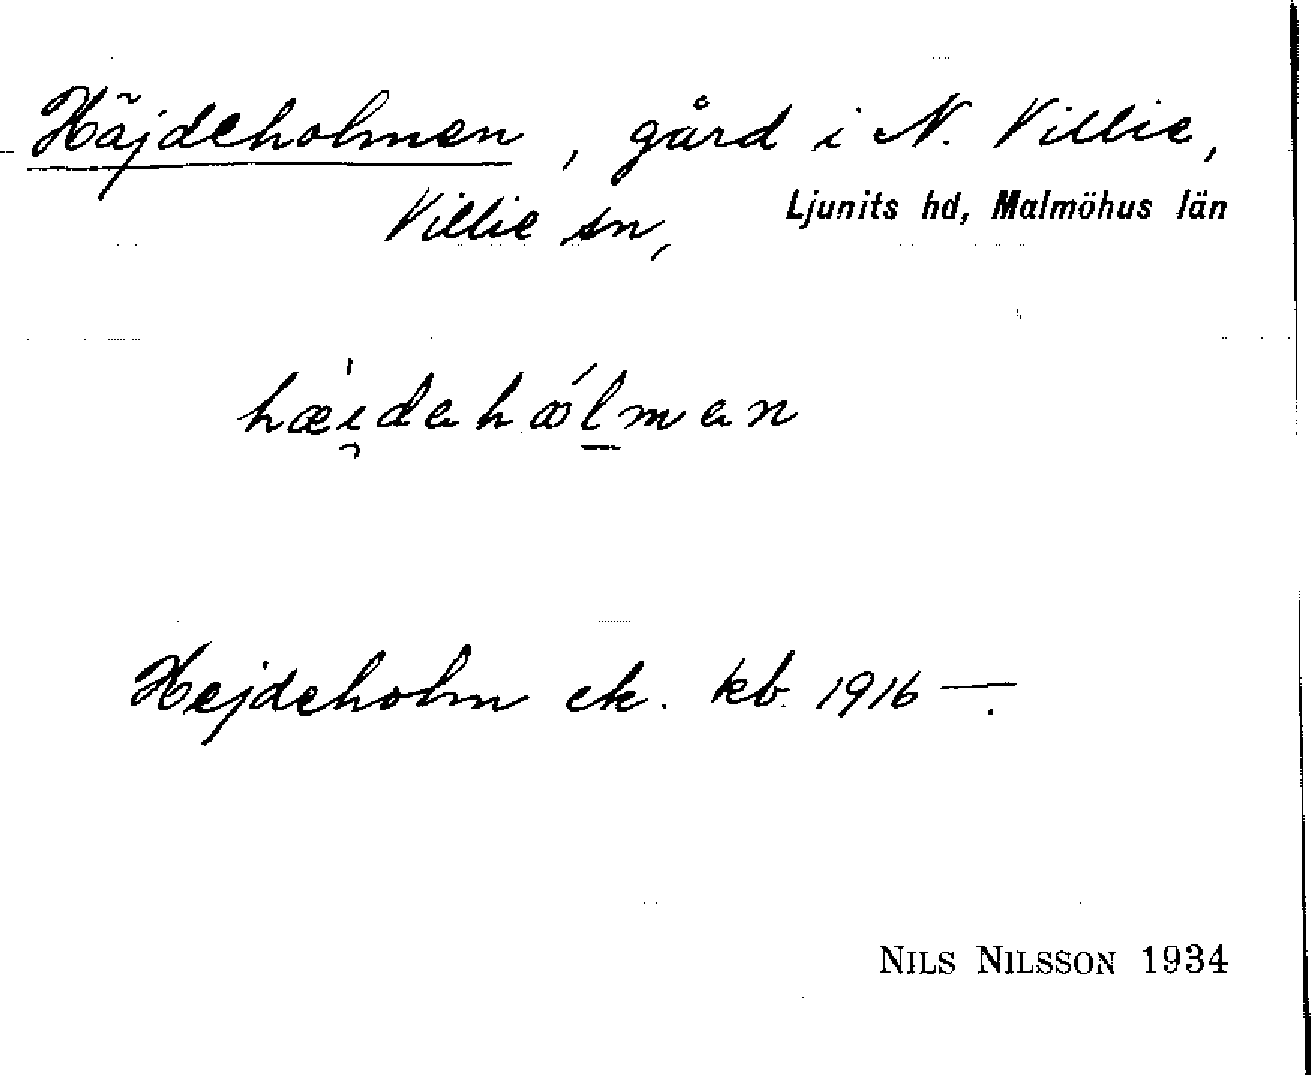 Häjdeholmen, gård i N. Villie,
Villie sn, Ljunits hd, Malmöhus län
hæ̀i̯dahǿl̠man
Hejdeholm ek. kb. 1916 —.
NILS NILSSON 1934